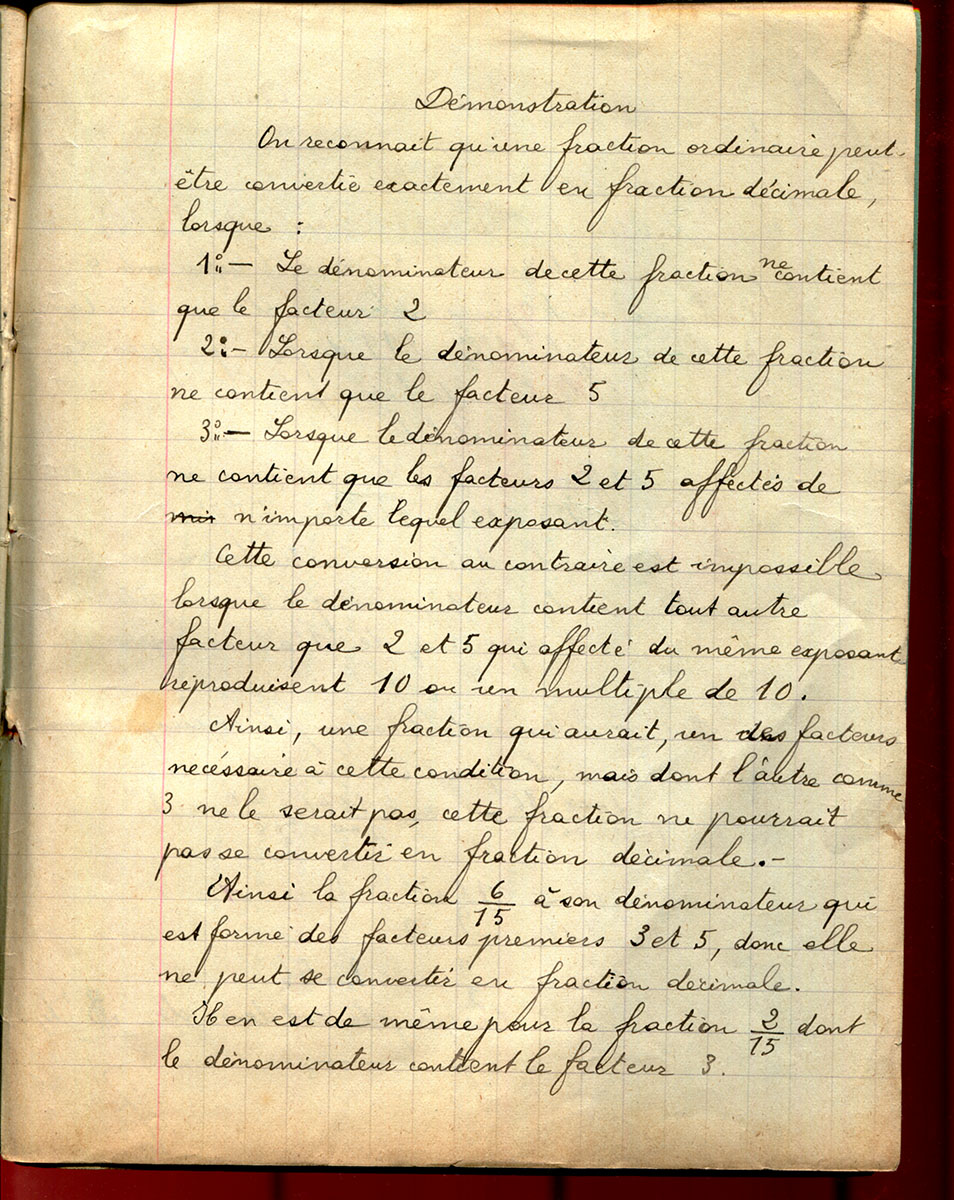 Démonstration
On reconnait qu'une fraction ordinaire peut-
être convertie exactement en fraction décimale,
lorsque :
1º:— Le dénominateur de cette fraction ne contient
que le facteur 2
2º:- Lorsque le dénominateur de cette fraction
ne contient que le facteur 5
3º:— Lorsque le dénominateur de cette fraction
ne contient que les facteurs 2 et 5 affectés de
n'importe lequel exposant.
Cette conversion au contraire est impossible
lorsque le dénominateur contient tout autre
facteur que 2 et 5 qui affecté du même exposant
réproduisent 10 ou un multiple de 10.
Ainsi, une fraction qui aurait, un des facteurs
necéssaire à cette condition, mais dont l'autre comme
3 ne le serait pas, cette fraction ne pourrait
pas se convertir en fraction décimale.-
Ainsi la fraction 6/15 à son dénominateur qui
est formé des facteurs premiers 3 et 5, donc elle
ne peut se convertir en fraction décimale.
Il en est de même pour la fraction 2/15 dont
le dénominateur contient le facteur 3.